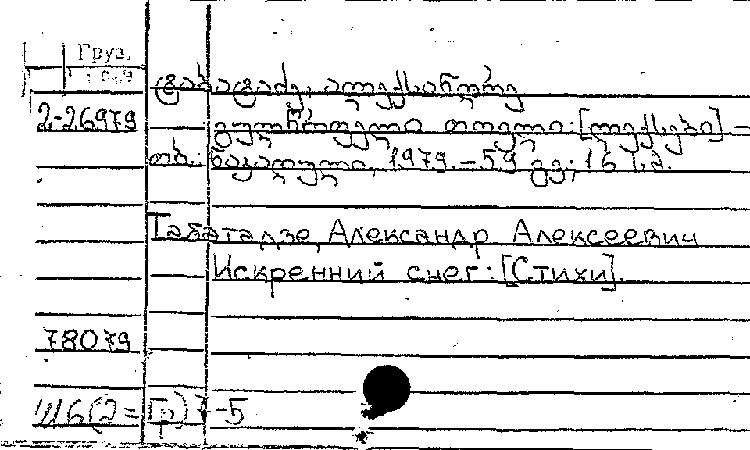 Груз.
ტაბატაძე, ალექსანდრე
2-26979
გულწრფელი თოვლი: [ლექსები] –
თბ.: ნაკადული, 1979. – 59 გვ; 16 სმ.
Табатадзе, Александр Алексеевич
Искренний снег: [Стихи].
78079